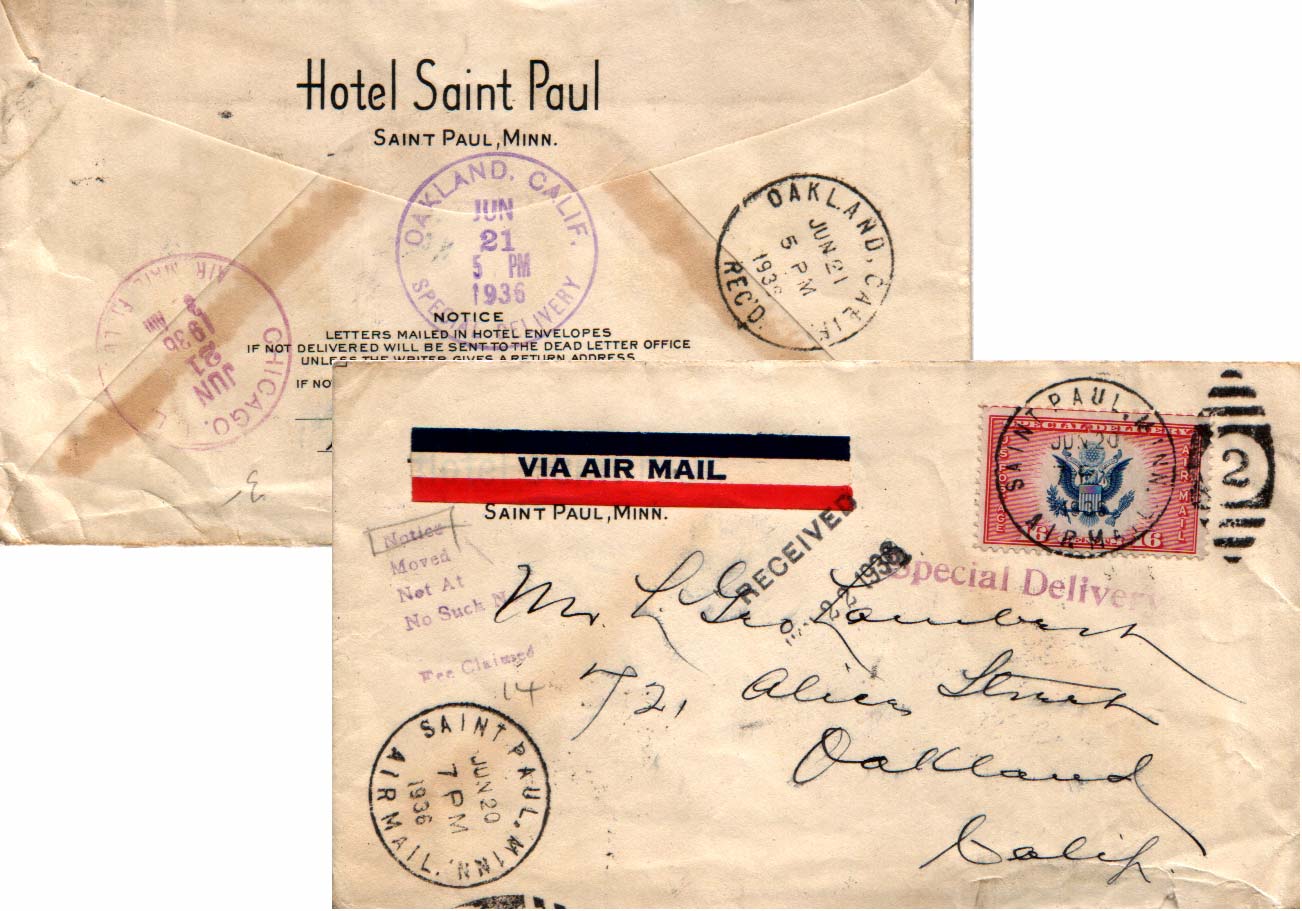 Hotel Saint Paul
SAINT PAUL, MINN.
OAKLAND, CALIF.
JUN
21
5 PM
1936
SPECIAL DELIVERY
OAKLAND, CALIF.
JUN 21
5 PM
1936
REC'D.
CHICAGO,
AIR MAIL
JUN
21
1936
NOTICE
LETTERS MAILED IN HOTEL ENVELOPES
IF NOT DELIVERED WILL BE SENT TO THE DEAD LETTER OFFICE
UNLESS THE WRITER GIVES A RETURN ADDRESS
IF NO
VIA AIR MAIL
SAINT PAUL, MINN.
SAINT PAUL, MINN.
JUN 20
AIRMAIL
2
SPECIAL DELIVERY
AIR MAIL
16
Notice
Moved
Not At
No Such N
Fee Claimed
14
RECEIVED
22 1936
Special Delivery
Mr. L. Geo. Lambert
721 Alice Street
Oakland
Calif.
SAINT PAUL, MINN.
JUN 20
7 PM
1936
AIRMAIL